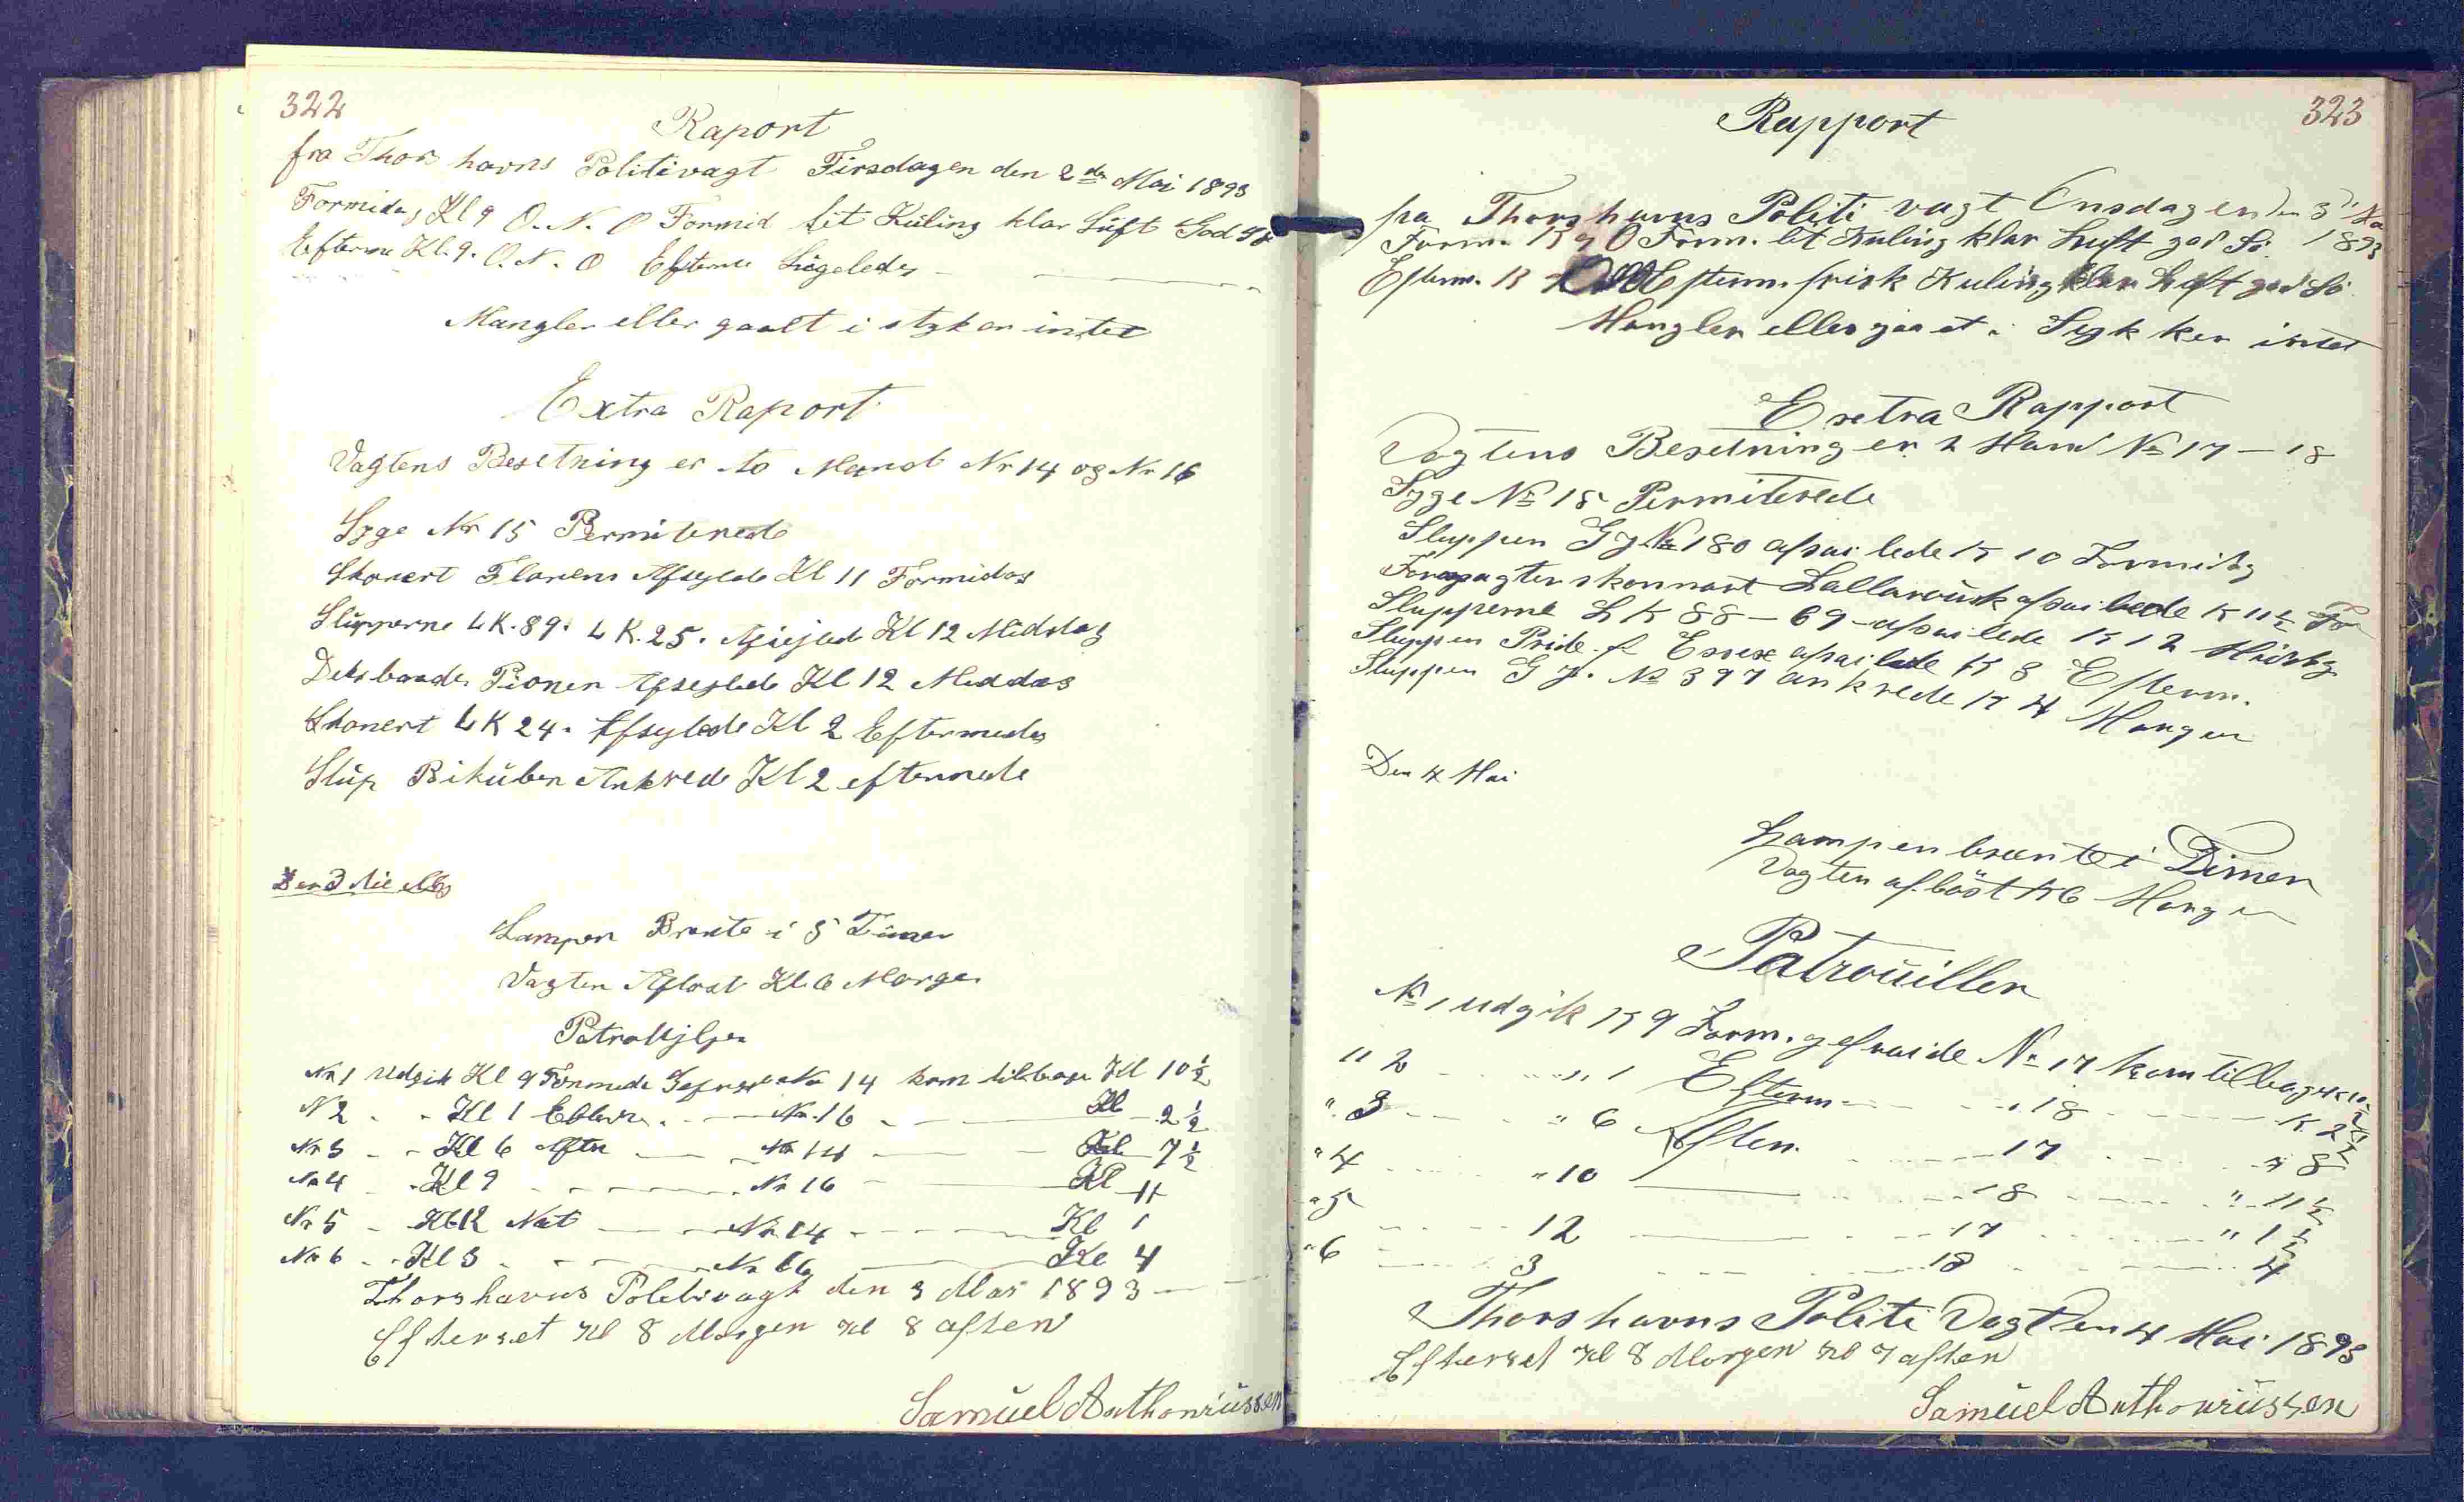 322
Raport
fra Thors havns Politivagt Tirsdagen den 2den Mai 1893
Formidag Kl 9 O. N. O Formid let Kuling klar Luft God Sø
Efterm Kl. 9. O. N. O Efterm Ligeledes
Mangler eller gaalt i styker intet
Extra Raport
Vagtens Besetning er to Mand Nr 14 og Nr 16
Syge Nr 15 Permiterede
Skonert Florens Afseglede Kl 11 Formidag
Slupperne LK. 89. LK. 25. Kl 12 Middag
Pioner Afseglede Kl 12 Middag
Skonert LK 24. Afseglede Kl 2 Eftermidag
Slup Bikuben Ankrede Kl 2 eftermede
Den 3
Lampen Brente i 5 Timer
Vagten Aflost Kl. 6 Morgen
Nr 1 udgik Kl 9 Formede Nr 14 kom tilbage Kl 10 ½
N 2 - - Kl 1 Nr. 16 Kl 2 ½
Nr 3 - - Kl 6 Aften Nr 14 Kl 7 ½
Nr 4 - Kl 9 Nr 16 Kl 11
Nr 5 - Kl 12 Nat Nr. 14 Kl 1
Nr 6 - - Kl 3 Nr 16 Kl 4
Thorshavns Politivagt den 3 Mai 1893
Efterset Kl 8 Morgen Kl 8 aften
Samuel Anthoniussen
323
Rapport
fra Thorshavns Politi vagt Onsdagen den 3 Mai
1893
Form. K 9 O Form. let Kuling klar Luft god Sö.
Efterm. K Efterm. frisk Kuling klar Luft god Sö.
Mangler eller gaaet i Stykker intet
Exstra Rapport
Vagtens Besetning er 2 Mand No 17 - 18
Syge No 15 Permiterede
Sluppen G J. No 180 afsailede K 10 Formidg
skonnart afsailede K 11½
Slupperne L K 88 - 69 - afsailede K 12 Middg
Sluppen Pride of Essex afsailede K 3 Efterm.
Sluppen G J. No 397 ankrede K 4 Morgen
Den 4 Mai
Lampen brente i Timer
Vagten aflöst K 6 Morgen
Patrouiller
No 1 udgik K 9 Form. gefraide No 17 kom tilbage K 10 ½
" 2 " 1 Efterm " 18 K 2 ½
" 3 " 6 Aften. 17 " 8
" 4 " 10 18 " 11 ½
" 5 12 17 " 1 ½
" 6 3 18 4
Thorshavns Politi Vagt den 4 Mai 1893
Efterset Kl 8 Morgen Kl 7 aften
Samuel Anthoniussen